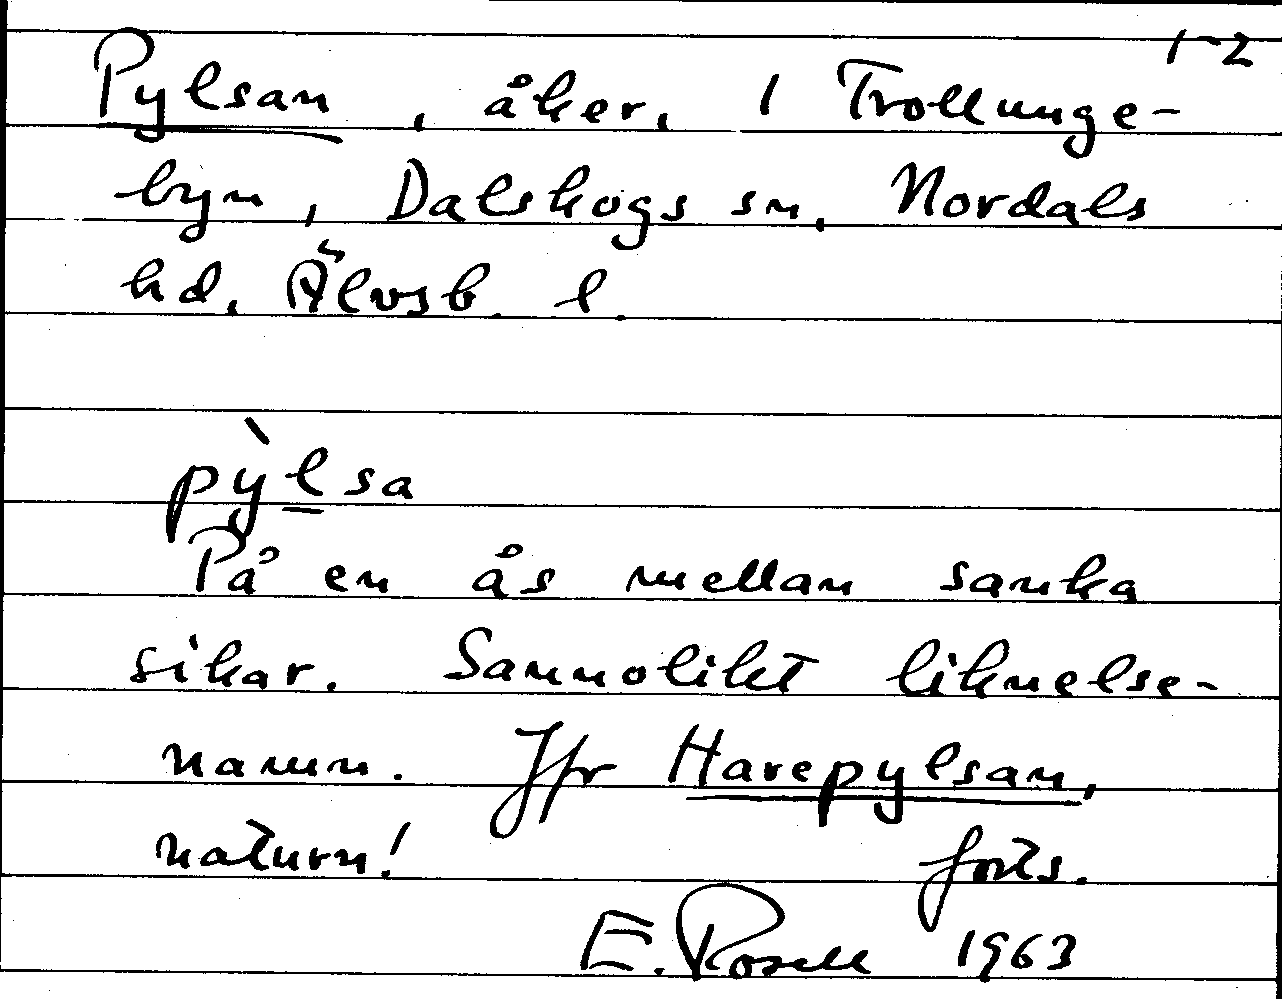 1-2
Pylsan, åker, 1 Trollunge-
byn, Dalskogs sn, Nordals
hd, Älvsb. l.
pỳlsa
På en ås mellan sanka
sikar. Sannolikt liknelse-
namn. Jfr Harepylsan,
naturn! forts.
E. Rosell 1963